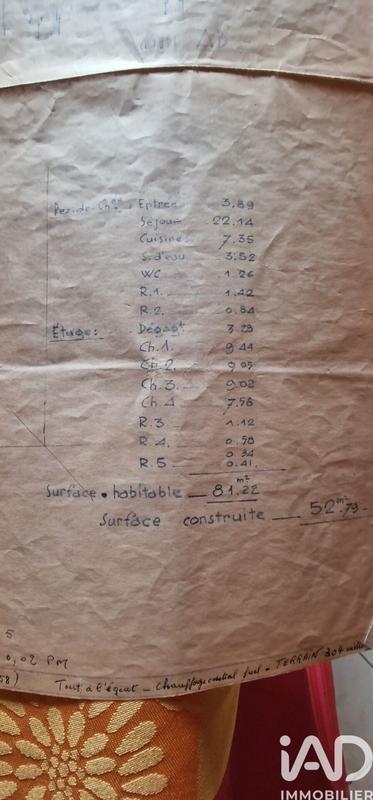 Rez-de-Ch.ée : Entrée 3.89
Séjour 22.14
Cuisine 7.35
S.d'eau 3.52
WC 1.26
R.1. 1.42
R.2. 0.84
Étage : Dégagt 3.23
Ch.1. 9.44
Ch.2. 9.05
Ch.3. 9.02
Ch.4 7.56
R.3 1.12
R.4. 0.58
0.34
R.5 0.41
Surface habitable 81.22 m²
Surface construite 52 m².79
5
0,02 PM
58)
Tout à l'égout - Chauffage central fuel - TERRAIN 304
iAD
IMMOBILIER